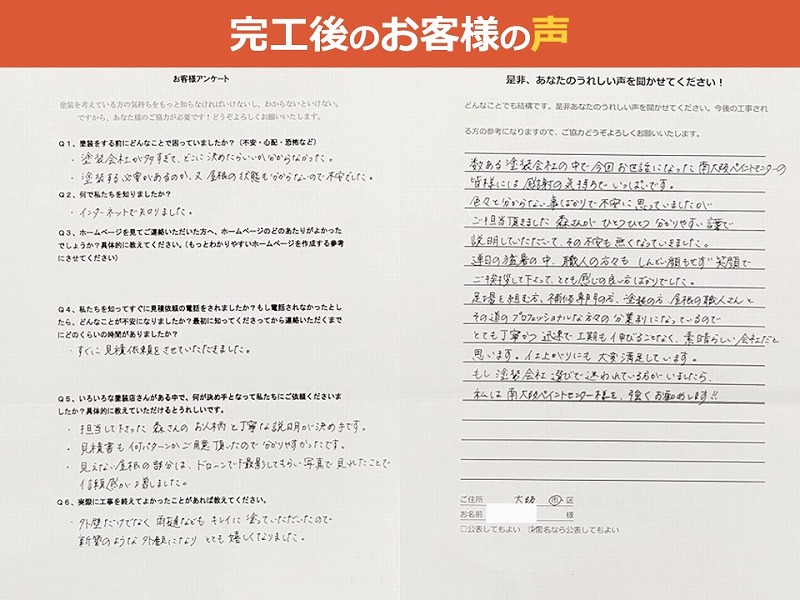 完工後のお客様の声
お客様アンケート
塗装を考えている方の気持ちをもっと知らなければいけないし、わからないといけない。
ですから、あなた様のご協力が必要です！どうぞよろしくお願いいたします。
Q1、塗装をする前にどんなことで困っていましたか？（不安・心配・恐怖など）
・塗装会社が多すぎて、どこに決めたらいいか分からなかった。
・塗装する必要があるのか、又屋根の状態も分からないので不安でした。
Q2、何で私たちを知りましたか？
・インターネットで知りました。
Q3、ホームページを見てご連絡いただいた方へ、ホームページのどのあたりがよかった
でしょうか？具体的に教えてください。（もっとわかりやすいホームページを作成する参考
にさせてください）
Q4、私たちを知ってすぐに見積依頼の電話をされましたか？もし電話されなかったとし
たら、どんなことが不安になりましたか？最初に知ってくださってから連絡いただくまで
にどのくらいの時間がありましたか？
・すぐに見積依頼をさせていただきました。
Q5、いろいろな塗装店さんがある中で、何が決め手となって私たちにご依頼くださいま
したか？具体的に教えていただけるとうれしいです。
・担当して下さった森さんのお人柄と丁寧な説明が決めてです。
・見積書も何パターンかご用意頂いたので分かりやすかったです。
・見えない屋根の部分は、ドローンで撮影してもらい写真で見れたことで
信頼感が増しました。
Q6、実際に工事を終えてよかったことがあれば教えてください。
・外壁だけでなく雨樋などもキレイに塗っていただいたので
新築のような外観になりとても嬉しくなりました。
是非、あなたのうれしい声を聞かせてください！
どんなことでも結構です。是非あなたのうれしい声を聞かせてください。今後の工事され
る方の参考になりますので、ご協力どうぞよろしくお願いいたします。
数ある塗装会社の中で今回お世話になった南大阪ペイントセンターの
皆様には感謝の気持ちでいっぱいです。
色々と分からない事ばかりで不安に思っていましたが
ご担当頂きました森さんがひとつひとつ分かりやすい言葉で
説明していただいて、その不安も無くなっていきました。
連日の猛暑の中、職人の方々もしんどい顔もせず笑顔で
ご挨拶して下さって、とても感じの良い方ばかりでした。
足場を組む方、補修専門の方、塗装の方、屋根の職人さんと
その道のプロフェッショナルな方々の分業制になっているので
とても丁寧かつ迅速で工期も伸びることなく、素晴らしい会社だと
思います。仕上がりにも大変満足しています。
もし塗装会社選びで迷われている方がいましたら、
私は南大阪ペイントセンター様を、強くお勧めします!!
ご住所 大阪 市・区
お名前 様
□公表してもよい ☑匿名なら公表してもよい